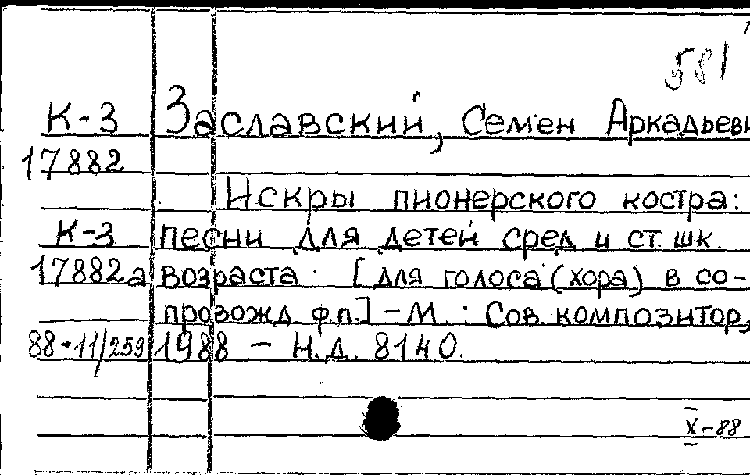 581
К-3 Заславский, Семен Аркадьеви
17882
Искры пионерского костра:
К-3 песни для детей сред и ст. шк.
17882а возраста : [для голоса (хора) в со-
провожд ф.п.] - М. : Сов. композитор,
88-11/259 1988 - Н.Д. 8140.
X-88